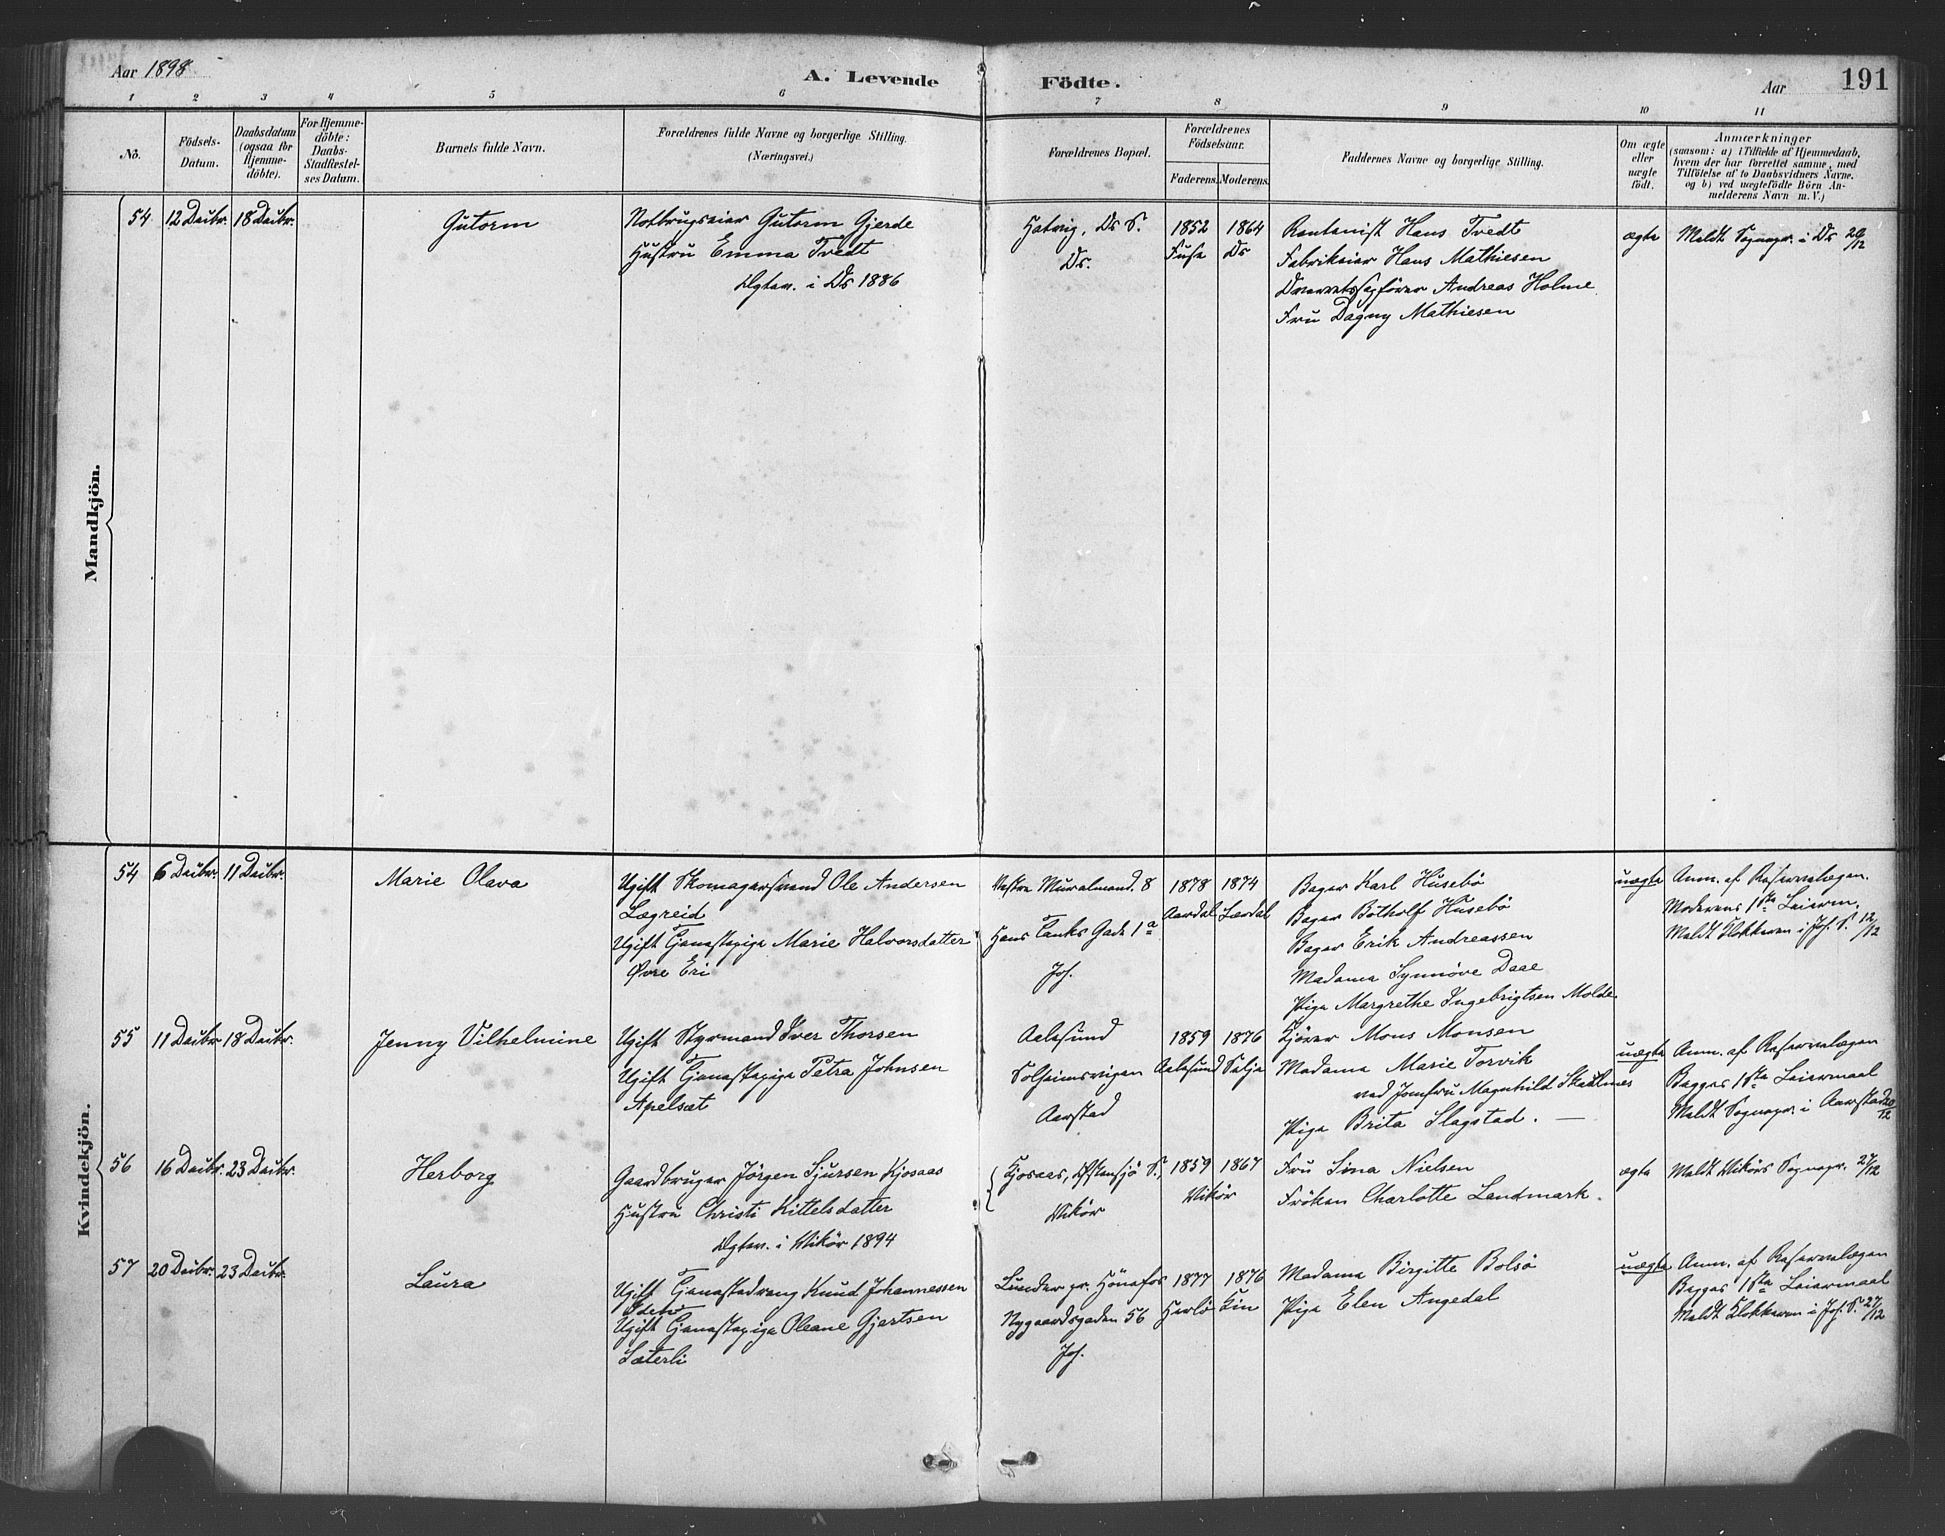 Aar 1898
A. Levende Födte.
Aar
191
1 2 3 4 5 6 7 8 9 10 11
No.
Födsels-
Datum.
Daabsdatum
(ogsaa for
Hjemme-
döbte).
For Hjemme-
döbte:
Daabs-
Stadfæstel-
ses Datum.
Barnets fulde Navn.
Forældrenes fulde Navne og borgerlige Stilling.
(Næringsvei.)
Forældrenes Bopæl.
Forældrenes
Födselsaar.
Faderens. Moderens.
Faddernes Navne og borgerlige Stilling.
Om ægte
eller
uægte
födt.
Anmærkninger
(saasom: a) i Tilfælde af Hjemmedaab,
hvem der har forrettet samme, med
Tilföielse af to Daabsvidners Navne,
og b) ved uægtefödte Börn An-
melderens Navn m. V.)
Mandkjön.
54 12 Decbr. 18 Decbr.
Gutorm
Gutorm Gjerde
Hustru Emma Tvedt
i Os 1886
Hatvig, Os S.
Os.
1852 1864
Fuse Os
Hans Tvedt
Fabrikeier Hans Mathiesen
Overretssagförer Andreas Holme
Fru Dagny Mathiesen
ægte
Meldt Sognepr. i Os 20/12
Kvindekjön.
54 6 Decbr. 11 Decbr.
Marie Olava
Ugift Skomagersvend Ole Andersen
Lægreid
Ugift Tjenestepige Marie Halvorsdatter
Øvre Eri
Vestre Muralmend. 8
Hans Tanks Gade 1a
Joh.
1878 1874
Aardal Lærdal
Bager Karl Husebö
Bager Botholf Husebö
Bager Erik Andreassen
Madame Synnöve Daae
Pige Margrethe Ingebrigtsen Molde
uægte
Anm. af Reservelægen.
Moderens 1ste Leierm.
Meldt Klokkeren i Joh. S. 12/12
55 11 Decbr 18 Decbr.
Jenny Vilhelmine
Ugift Styrmand Iver Thorsen
Ugift Tjenestepige Petra Johnsen
Apelsæt
Aalesund
Solheimsvigen
Aarstad
1859 1876
Aalesund Selje
Kjörer Mons Monsen
Madame Marie Torvik
ved Jomfru Magnhild Skulmes
Pige Brita Slagstad. —
uægte
Anm. af Reservelægen
Begges 1ste Leiermaal
Meldt Sognepr. i Aarstad 20/12
56 16 Decbr. 23 Decbr.
Herborg
Gaardbruger Jörgen Sjursen Kjosaas
Hustru Christi Kittelsdatter
i Vikör 1894
Kjosaas, Östensjö S.,
Vikör
1859 1867
Vikör
Fru Sina Nielsen
Fröken Charlotte Landmark.
ægte
Meldt Vikörs Sognepr. 27/12
57 20 Decbr. 23 Decbr.
Laura
Ugift Tjenestedreng Knud Johannessen
Ugift Tjenestepige Oleane Gjertsen
Sæterli
Lunder pr. Hönefos
Nygaardsgaden 56
Joh.
1877 1876
Herlö Kin
Madame Birgitte Bolsö
Pige Elen Angedal
uægte
Anm. af Reservelægen
Begges 1ste Leiermaal
Meldt Klokkeren i Joh. S. 27/12